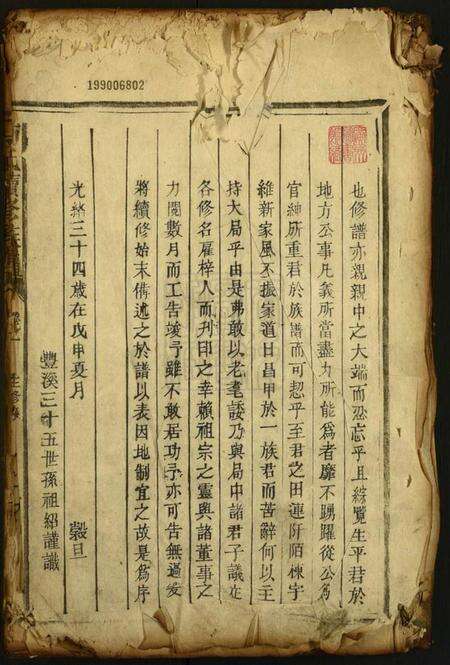 199006802
也修譜亦親親中之大端而忍忘乎且綜覽生平君於
地方公事凡義所當盡力所能為者靡不踴躍從公為
官紳所重君於族譜而可恝乎至君之田連阡陌棟宇
維新家風丕振家道日昌甲於一族君而苦辭何以主
持大局乎由是弗敢以老耄諉乃與局中諸君子議在
各修名雇梓人而刋印之幸賴祖宗之靈與諸董事之
力閱數月而工告竣予雖不敢居功予亦可告無過爰
將續修始末備述之於譜以表因地制宜之故是為序
光緒三十四歲在戊申夏月 穀旦
豐溪三十五世孫祖紹謹識